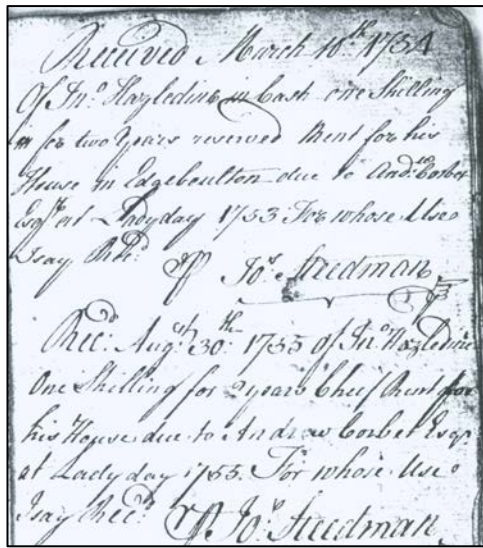 Received March 10th 1754
Of Jno Hazledine in Cash one Shilling
for two Years reserved Rent for his
House in Edgeboulton due to Andw Corbet
Esqr at Ladyday 1753 For whose Use
I say Recd
P Jos Steedman
Recd Augst 30th 1755 of Jno Hazledine
One Shilling for 2 years Cheif Rent for
his House due to Andrew Corbet Esqr
at Ladyday 1755. For whose Use
I say Recd P Jos Steedman